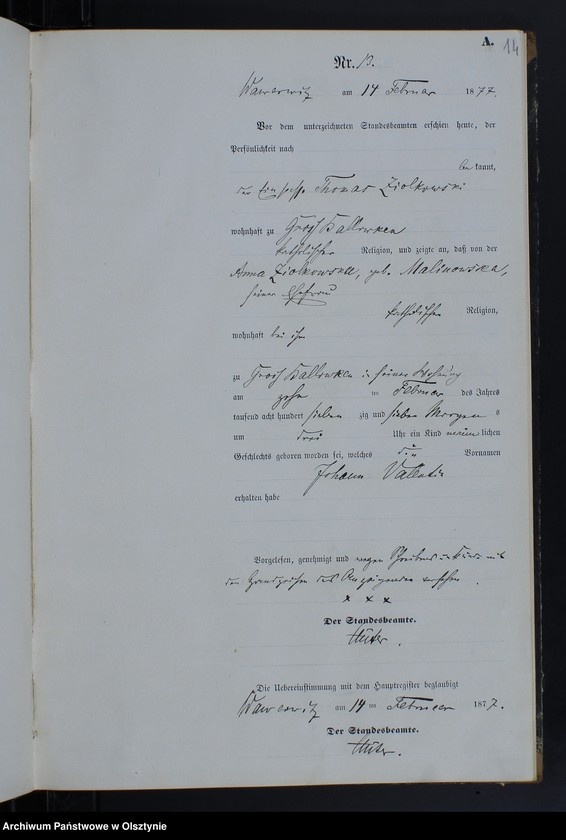 A. 14
Nr. 13.
Wawerwitz am 14 Februar 1877.
Vor dem unterzeichneten Standesbeamten erschien heute, der
Persönlichkeit nach
be kannt,
der Thomas Ziolkowski
wohnhaft zu Groß Ballowken
katholischer Religion, und zeigte an, daß von der
Anna Ziolkowska, geb. Malinowska,
seiner Ehefrau
katholischer Religion,
wohnhaft bei ihm
zu Groß Ballowken in seiner Wohnung
am zehn ten Februar des Jahres
tausend acht hundert sieben zig und sieben Morgen s
um drei Uhr ein Kind männ lichen
Geschlechts geboren worden sei, welches die Vornamen
Johann Vallentin
erhalten habe
Vorgelesen, genehmigt und wegen Schreibensunkunde mit
den Handzeichen des Anzeigenden versehen.
x x x
Der Standesbeamte.
Die Uebereinstimmung mit dem Hauptregister beglaubigt
Wawerwitz am 14 ten Februar 1877.
Der Standesbeamte.
Archiwum Państwowe w Olsztynie